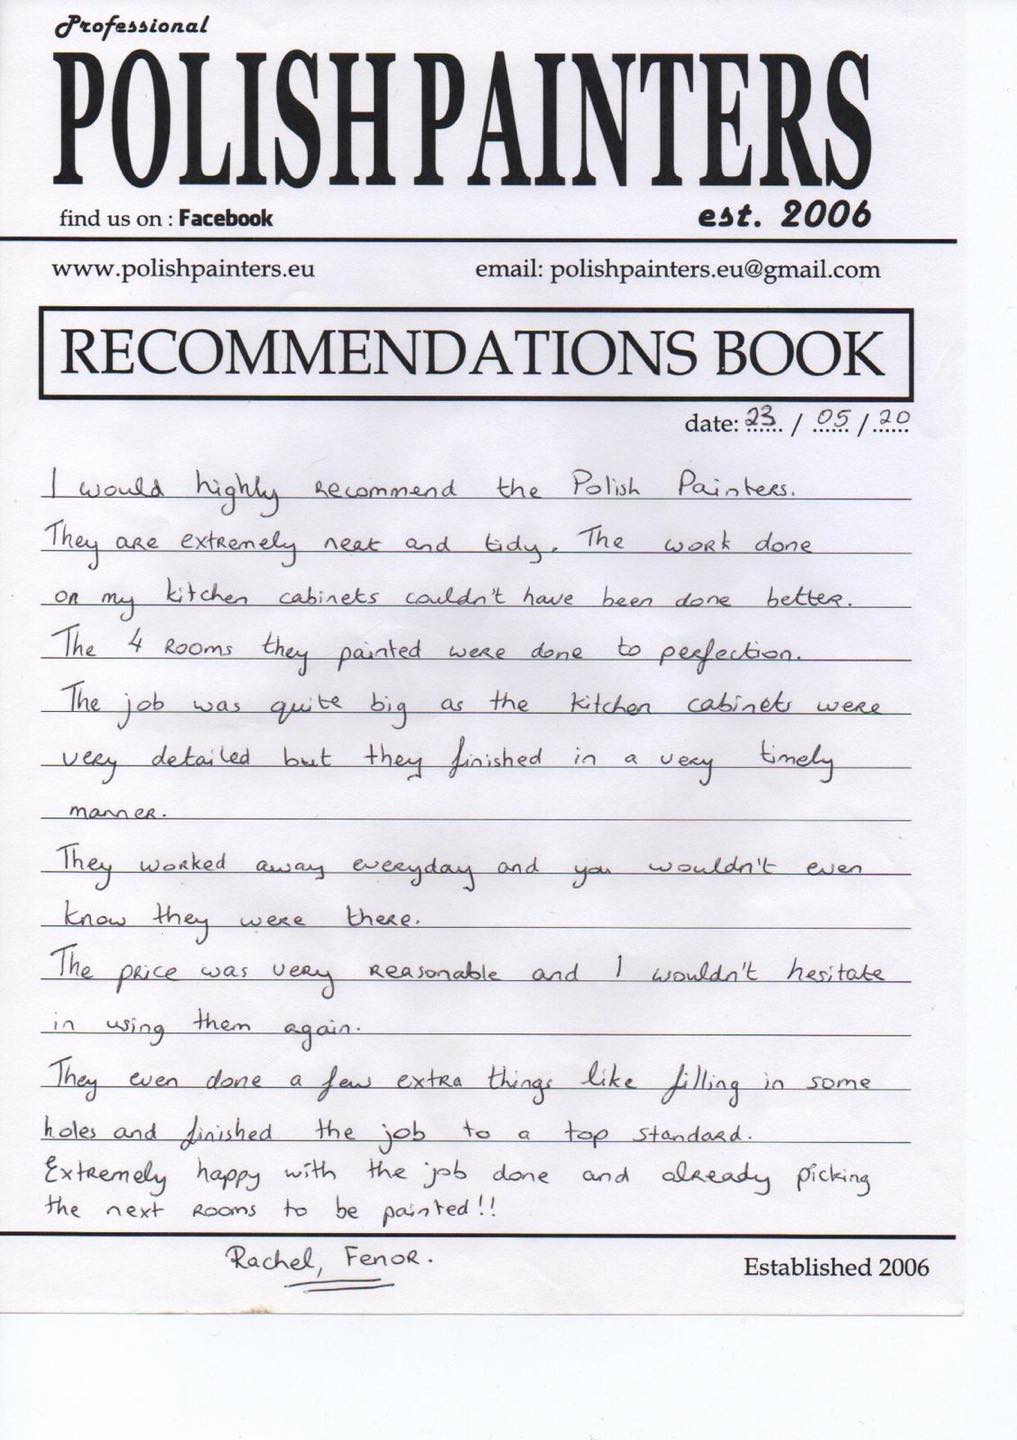 Professional
POLISH PAINTERS
find us on : Facebook
est. 2006
www.polishpainters.eu
email: polishpainters.eu@gmail.com
RECOMMENDATIONS BOOK
date: 23 / 05 / 20
I would highly recommend the Polish Painters.
They are extremely neat and tidy. The work done
on my kitchen cabinets couldn't have been done better.
The 4 rooms they painted were done to perfection.
The job was quite big as the kitchen cabinets were
very detailed but they finished in a very timely
manner.
They worked away everyday and you wouldn't even
know they were there.
The price was very reasonable and I wouldn't hesitate
in using them again.
They even done a few extra things like filling in some
holes and finished the job to a top standard.
Extremely happy with the job done and already picking
the next rooms to be painted!!
Rachel, Fenor.
Established 2006